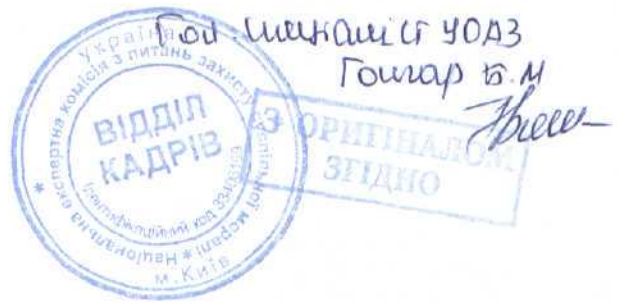 Гол. спеціаліст УОАЗ
Гончар Б.М
Україна
Національна експертна комісія з питань захисту суспільної моралі
ВІДДІЛ
КАДРІВ
Ідентифікаційний код
м. Київ
З ОРИГІНАЛОМ
ЗГІДНО